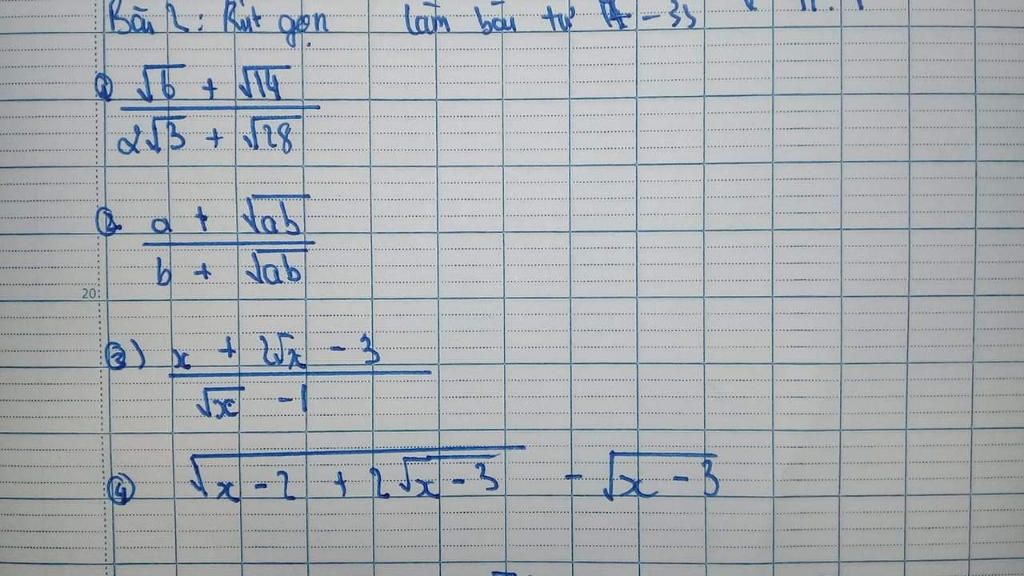 Bài 2: Rút gọn làm bài từ - 33
① √6 + √14
2√3 + √28
② a + √ab
b + √ab
20
③) x + 2√x - 3
√x - 1
④ √(x - 2 + 2√(x - 3)) - √(x - 3)